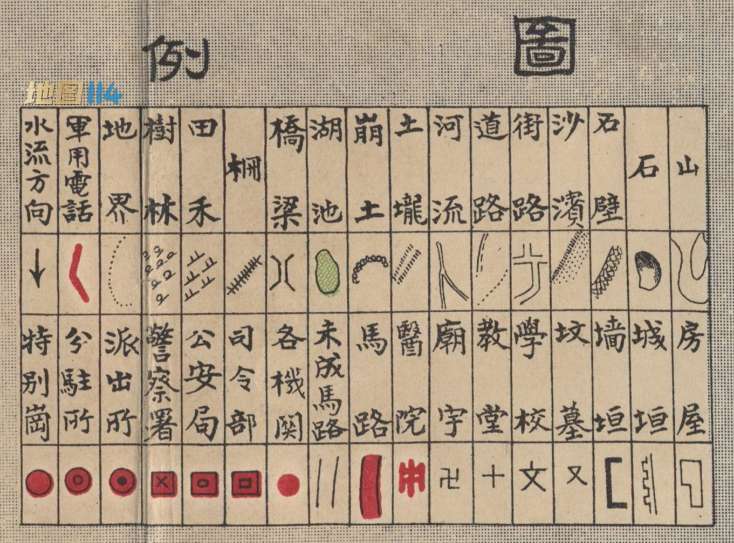 圖例
地图114
山
石
石壁
沙濱
街路
道路
河流
土壠
崩土
湖池
橋梁
柵
田禾
樹林
地界
軍用電話
水流方向
房屋
城垣
墙垣
坟墓
學校
教堂
廟宇
醫院
馬路
未成馬路
各機関
司令部
公安局
警察署
派出所
分駐所
特别崗
又
文
十
卍